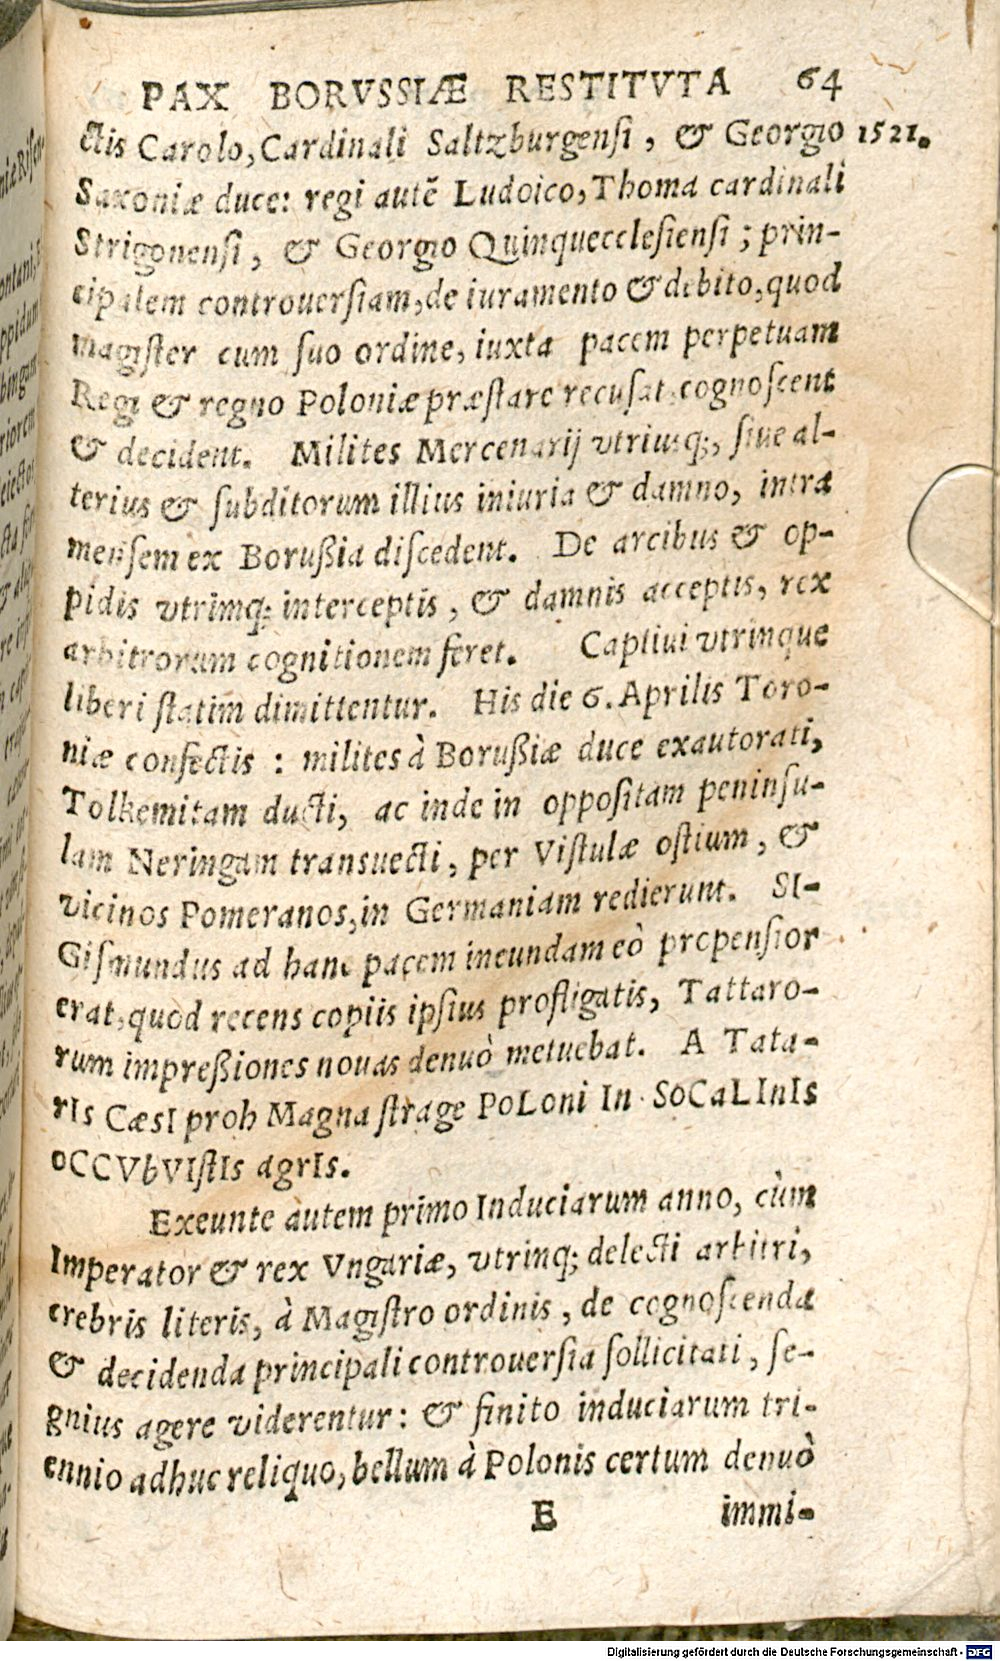 PAX BORVSSIÆ RESTITVTA 64
ctis Carolo, Cardinali Saltzburgensi, & Georgio 1521.
Saxoniæ duce: regi autē Ludoico, Thoma cardinali
Strigonensi, & Georgio Quinquecclesiensi; prin-
cipalem controuersiam, de iuramento & debito, quod
magister cum suo ordine, iuxta pacem perpetuam
Regi & regno Poloniæ præstare recusat, cognoscent
& decident. Milites Mercenarij vtriusq;, siue al-
terius & subditorum illius iniuria & damno, intra
mensem ex Borußia discedent. De arcibus & op-
pidis vtrimq; interceptis, & damnis acceptis, rex
arbitrorum cognitionem feret. Captiui vtrinque
liberi statim dimittentur. His die 6. Aprilis Toro-
niæ confectis : milites à Borußiæ duce exautorati,
Tolkemitam ducti, ac inde in oppositam peninsu-
lam Neringam transuecti, per Vistulæ ostium, &
vicinos Pomeranos, in Germaniam redierunt. SI-
Gismundus ad hanc pacem ineundam eò propensior
erat, quod recens copiis ipsius profligatis, Tattaro-
rum impreßiones nouas denuò metuebat. A Tata-
rIs CæsI proh Magna strage PoLoni In SoCaLInIs
oCCVbVIstIs agrIs.
Exeunte autem primo Induciarum anno, cùm
Imperator & rex Vngariæ, vtrinq; delecti arbitri,
crebris literis, à Magistro ordinis, de cognoscenda
& decidenda principali controuersia sollicitati, se-
gnius agere viderentur: & finito induciarum tri-
ennio adhuc reliquo, bellum à Polonis certum denuò
E immi-
Digitalisierung gefördert durch die Deutsche Forschungsgemeinschaft - DFG